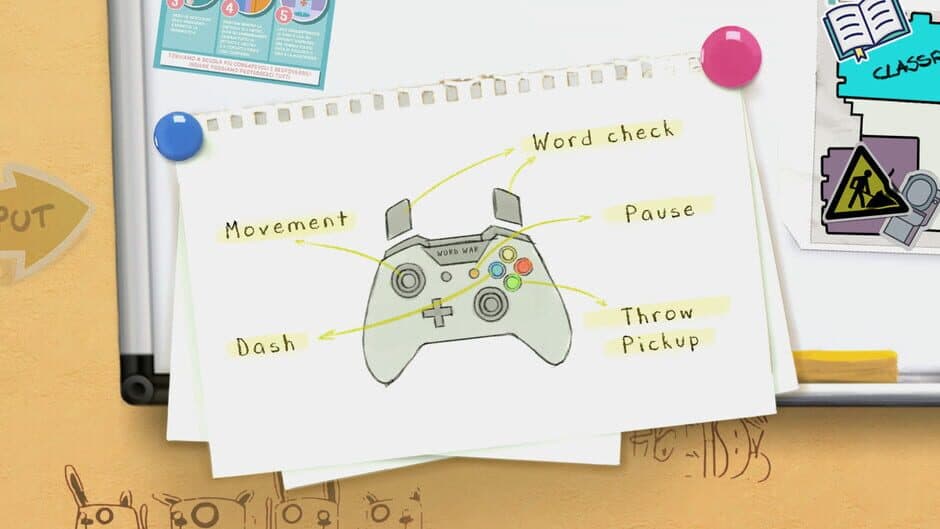 3
4
5
TORNIAMO A SCUOLA PIÙ CONSAPEVOLI E RESPONSABILI:
INSIEME POSSIAMO PROTEGGERCI TUTTI
CLASSR
Word check
Movement
Pause
PUT
WORD WAR
Dash
Throw
Pickup